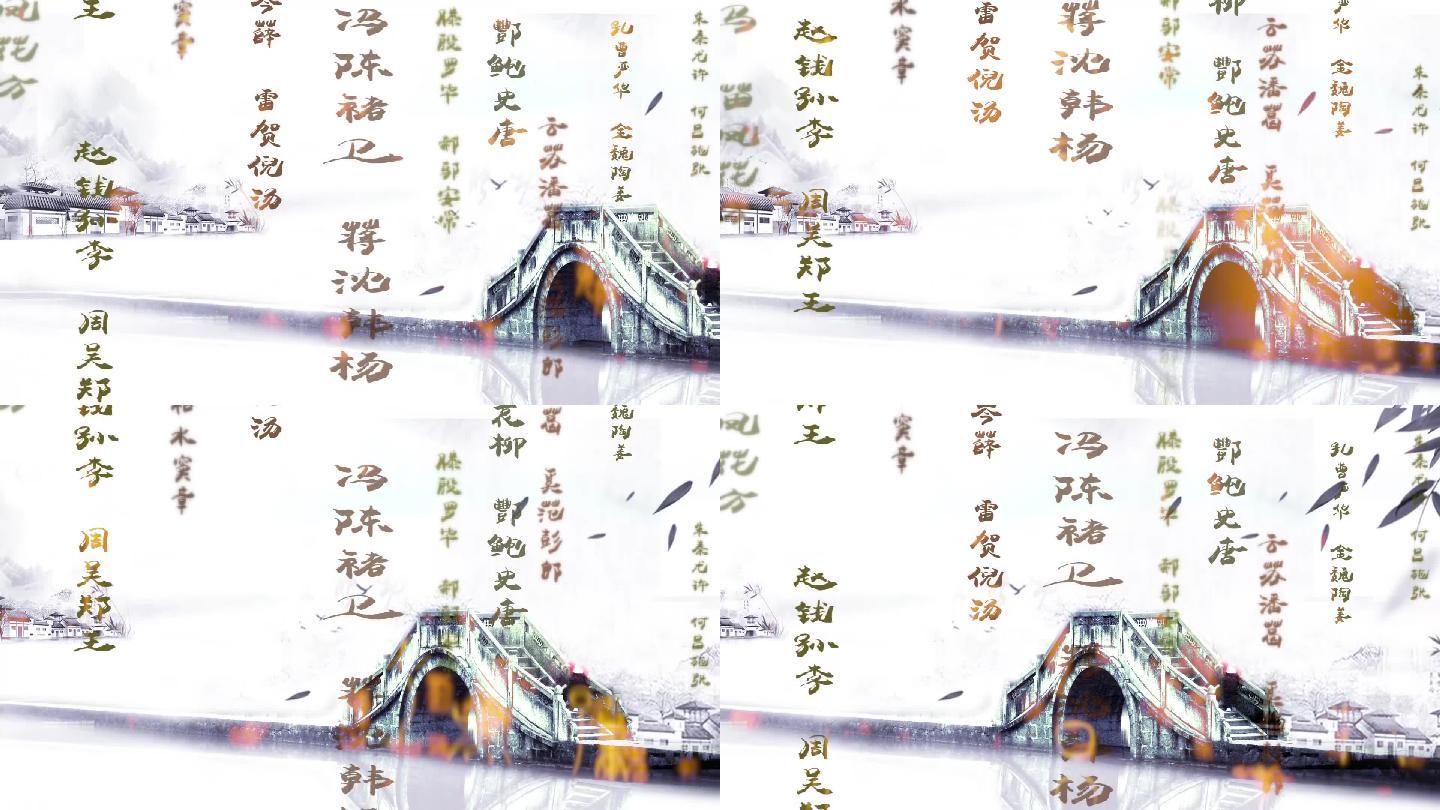 凤花方
王
赵钱孙李 周吴郑
窦章
岑薛 雷贺倪汤
冯陈褚卫 蒋沈韩杨
滕殷罗毕 郝邬安常
酆鲍史唐
云苏潘葛 郎
孔曹严华 金魏陶姜
朱秦尤许 何吕施张
马 苗凤花
赵钱孙李 周吴郑王
水窦章
雷贺倪汤
蒋沈韩杨
郝邬安常
柳 酆鲍史唐
云苏潘葛
严华 金魏陶姜
朱秦尤许 何吕施张
钱孙李 周吴郑王
柏水窦章
汤
冯陈褚卫 蒋沈韩
滕殷罗毕 郝邬
花柳 酆鲍史唐
葛 吴范彭郎
魏陶姜
朱秦尤许 何吕施张
凤花方
郑王
赵钱孙李 周吴
窦章
岑薛 雷贺倪汤
冯陈褚卫 杨
滕殷罗毕 郝邬安
酆鲍史唐
云苏潘葛
孔曹严华 金魏陶姜
何吕施张